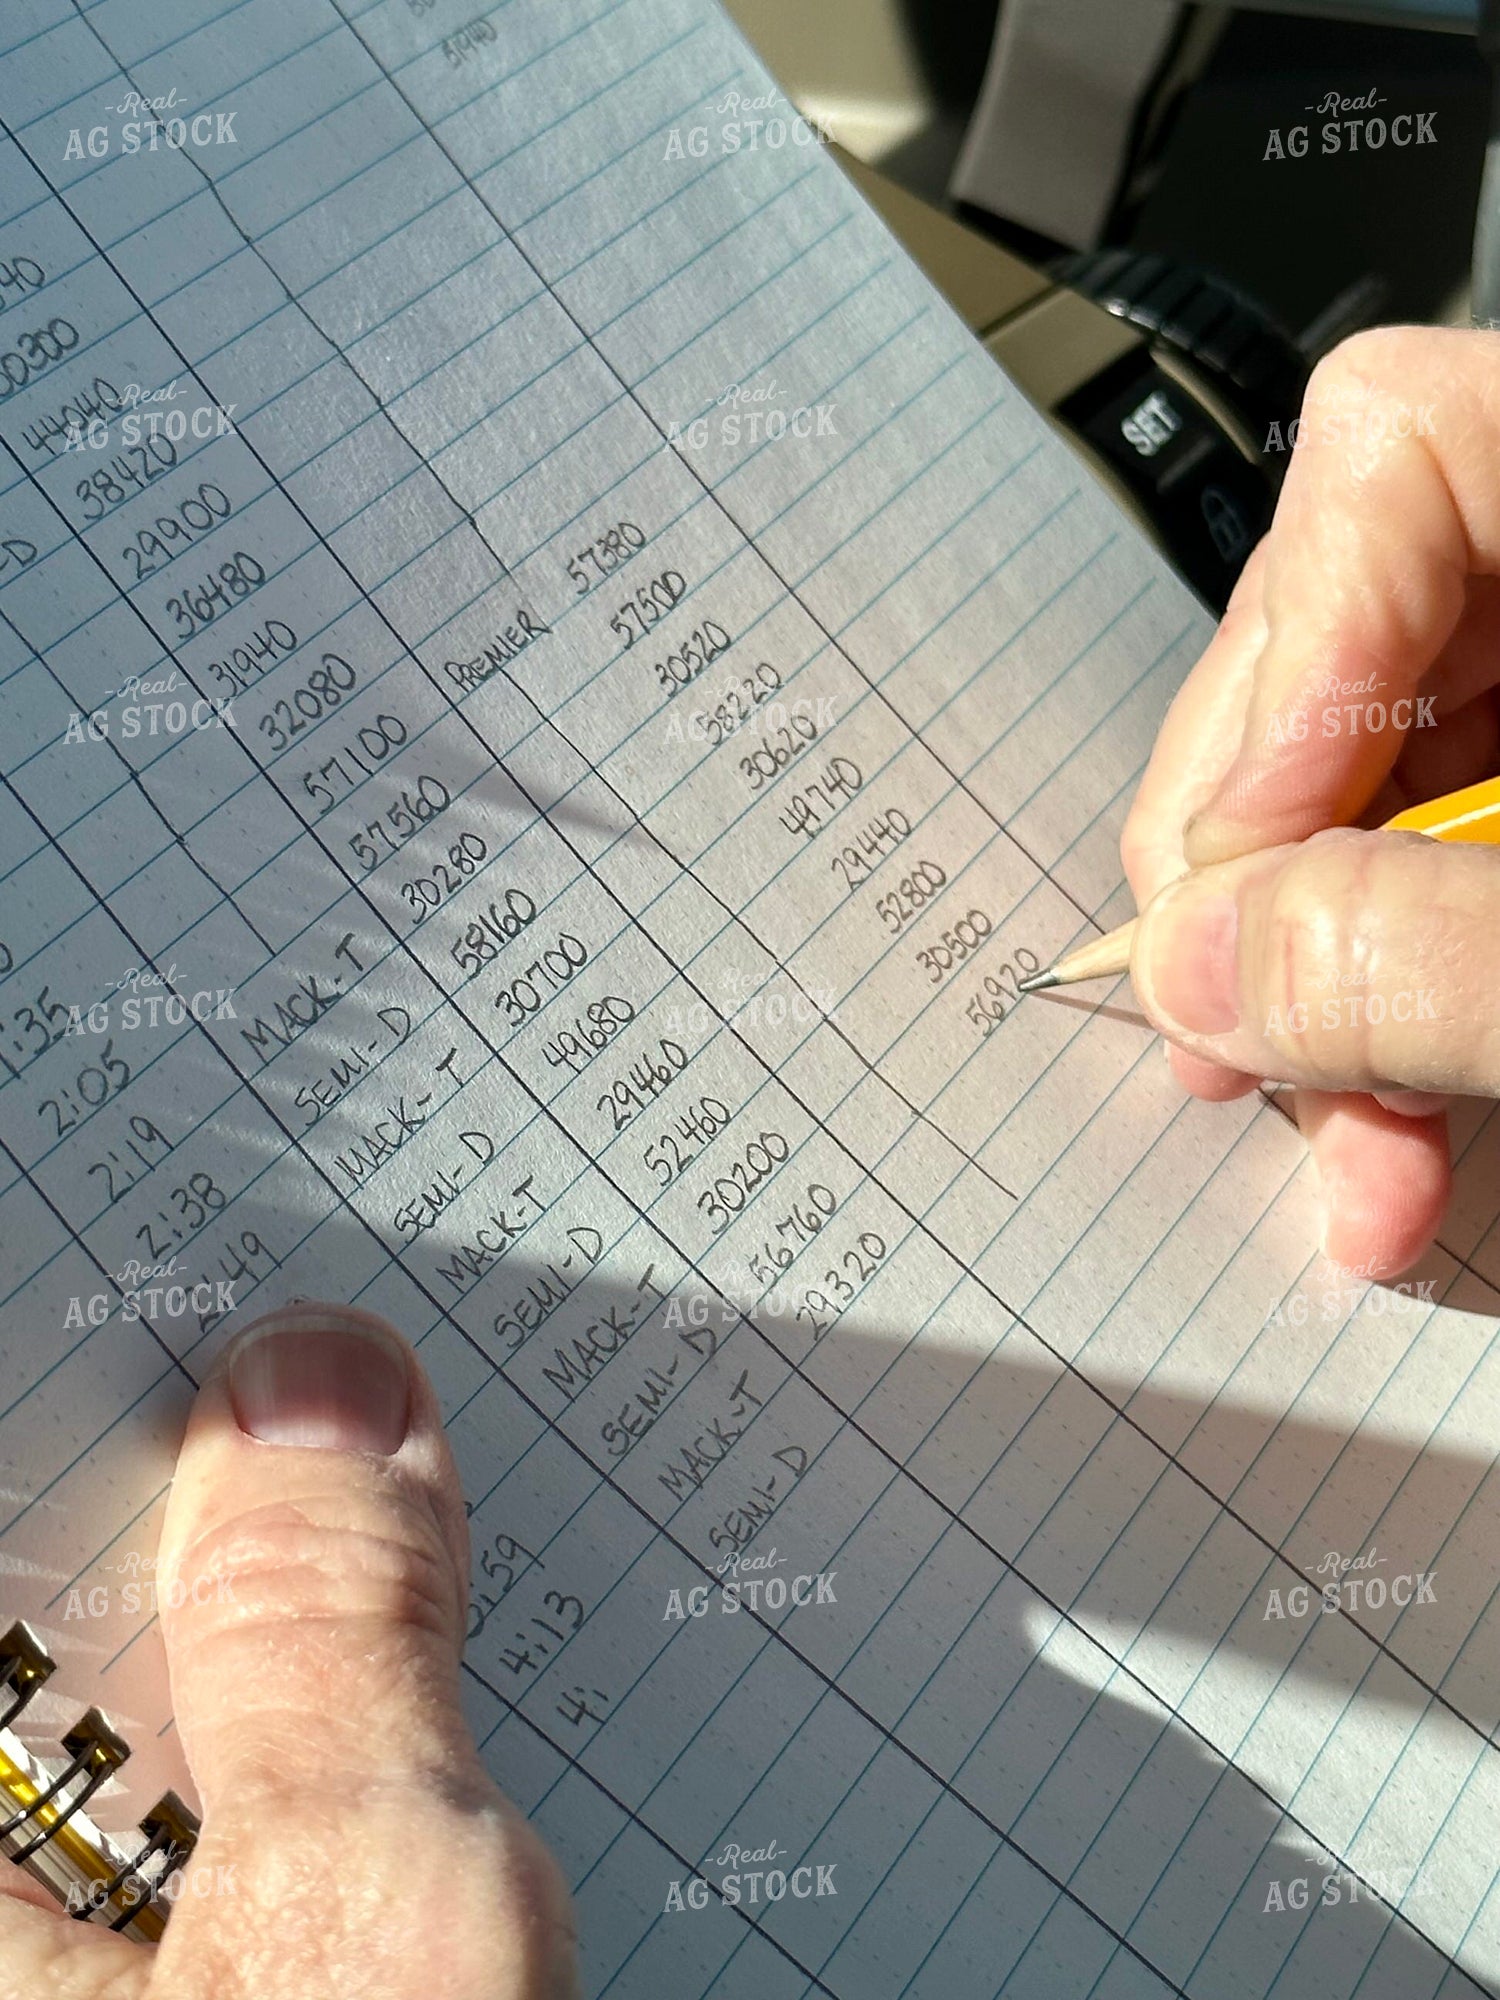 51940
44040
38420
29900
36480
31940
32080
:35 57100 PREMIER 57380
2:05 57560 57500
2:19 MACK-T 30280 30520
2:38 SEMI-D 58160 58220
2:49 MACK-T 30700 30620
SEMI-D 49680 49740
MACK-T 29460 29440
SEMI-D 52460 52800
MACK-T 30200 30500
:59 SEMI-D 56760 56920
4:13 MACK-T 29320
4: SEMI-D
SET
-Real-
AG STOCK